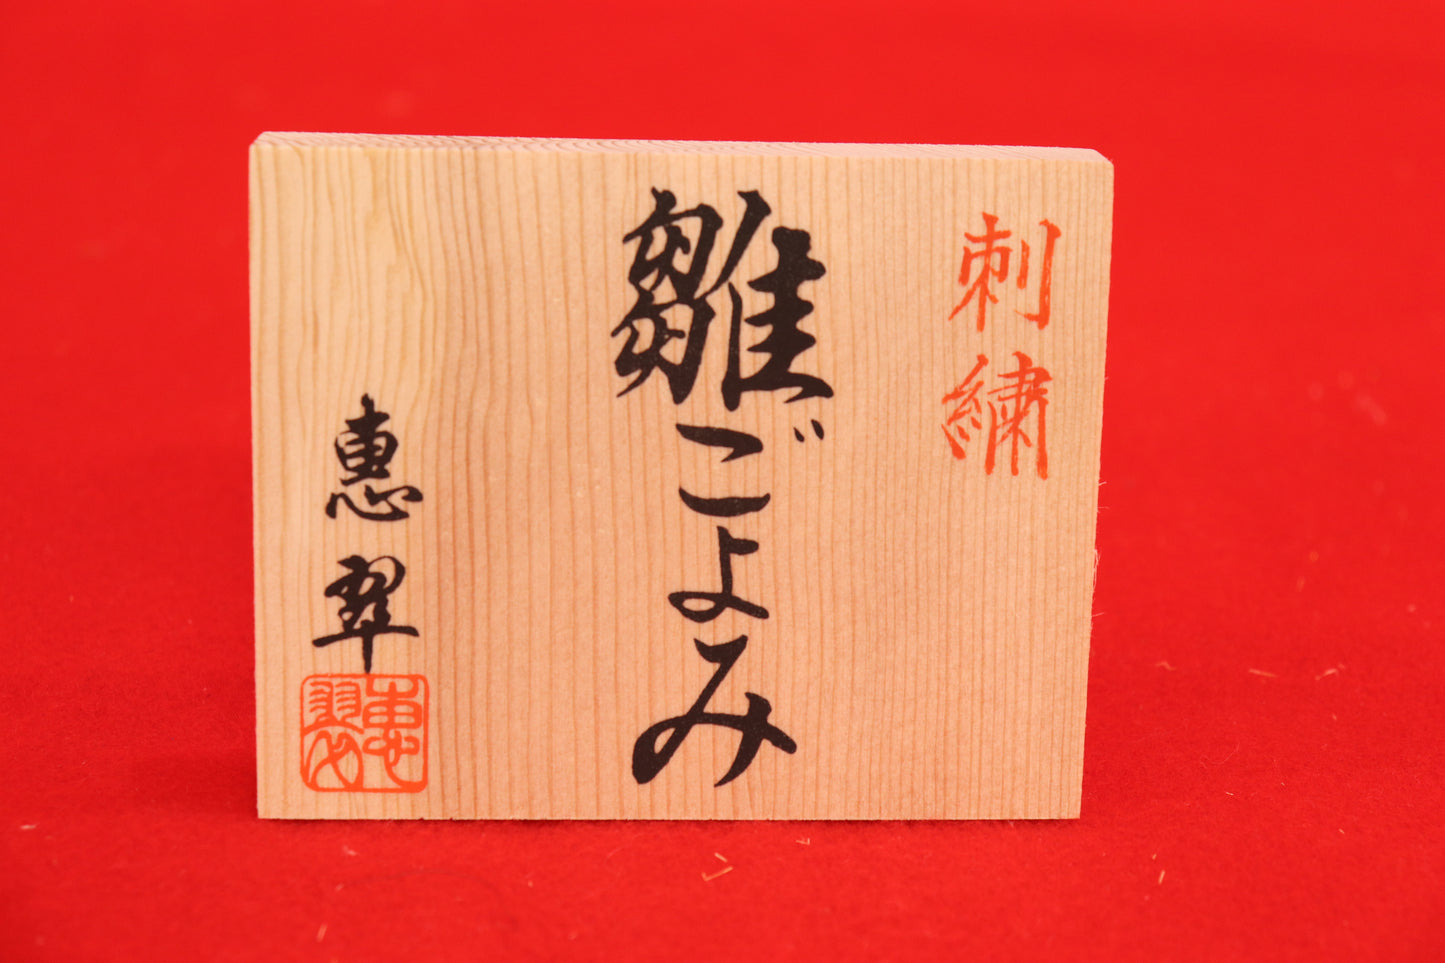 刺繍
雛ごよみ
恵翠
恵翠